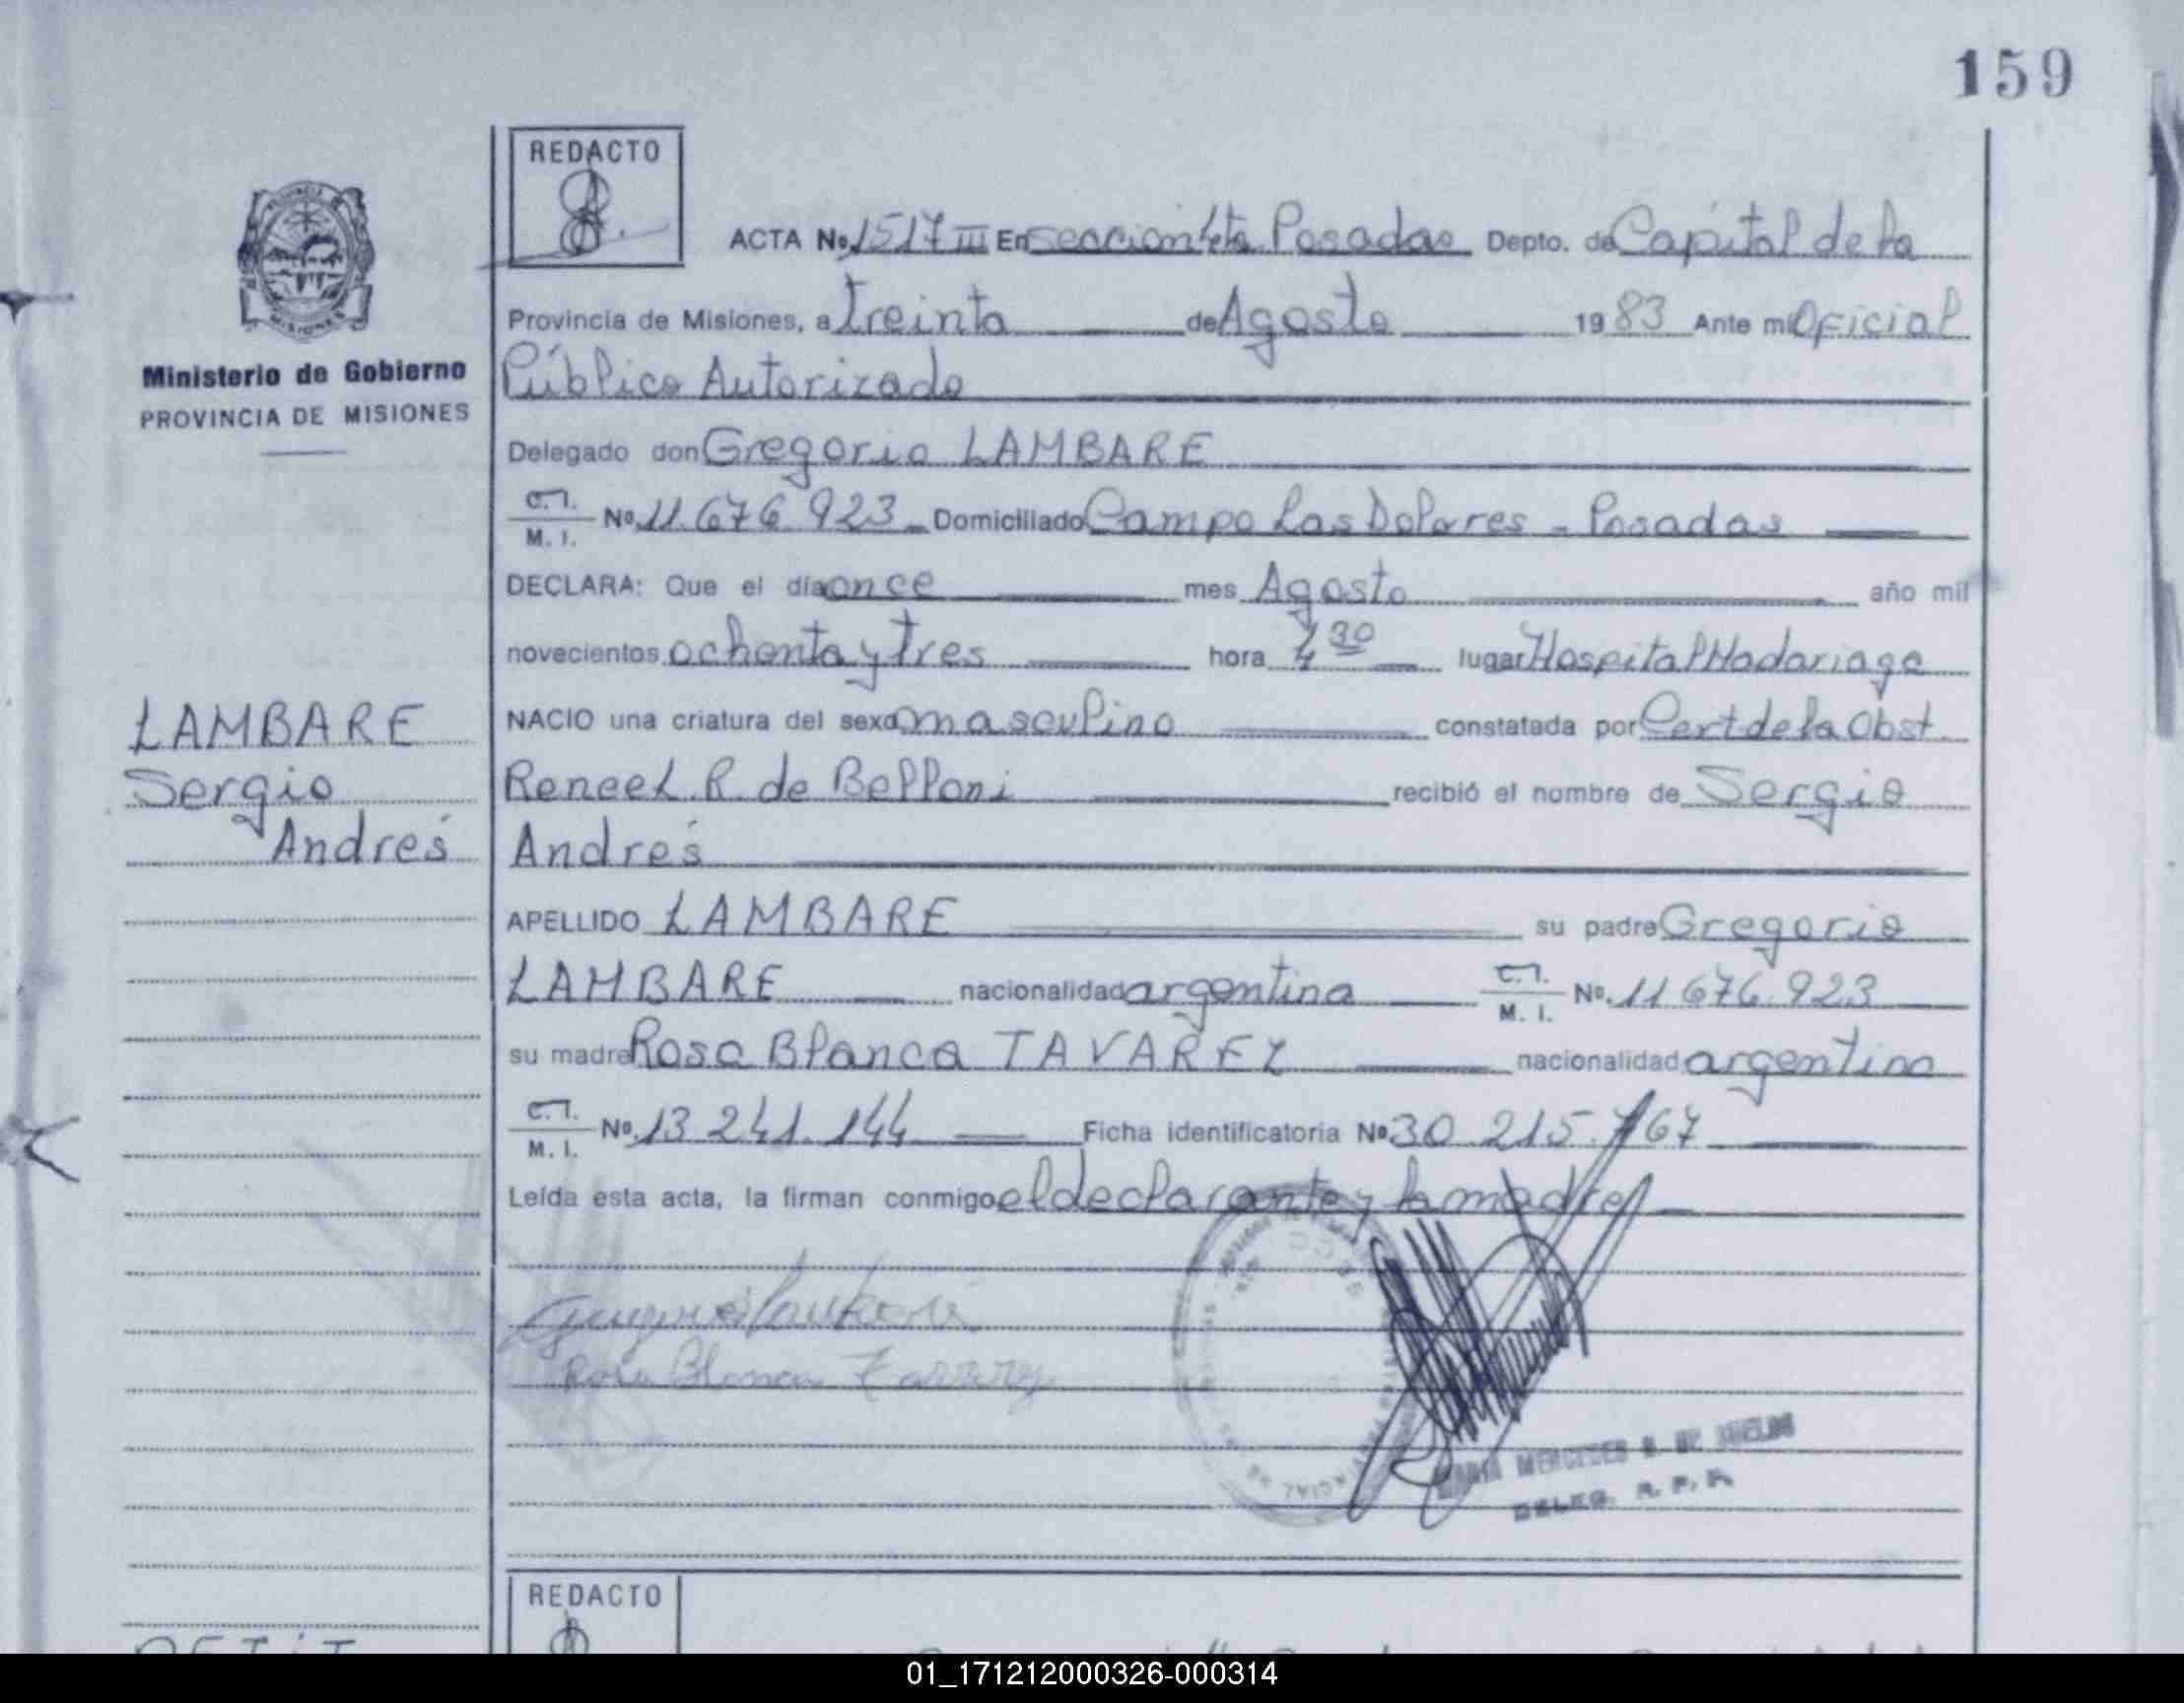 159
REDACTO
ACTA No. 1517 III En seccion 4ta Posadas Depto. de Capital de la
Provincia de Misiones, a treinta de Agosto 1983 Ante mi Oficial
Público Autorizado
Ministerio de Gobierno
PROVINCIA DE MISIONES
Delegado don Gregorio LAMBARE
C.I. M. I. No. 11.676.923 Domiciliado Campo Las Dolores - Posadas
DECLARA: Que el día once mes Agosto año mil
novecientos ochenta y tres hora 4 30 lugar Hospital Madariaga
LAMBARE
Sergio
Andrés
NACIO una criatura del sexo masculino constatada por Cert de la Obst.
Renee L. R. de Belloni recibió el nombre de Sergio
Andrés
APELLIDO LAMBARE su padre Gregorio
LAMBARE nacionalidad argentina C.I. M. I. No. 11 676.923
su madre Rosa Blanca TAVAREZ nacionalidad argentina
C.I. M. I. No. 13 241.144 Ficha identificatoria No 30 215.767
Leída esta acta, la firman conmigo el declarante y la madre
Rosa Blanca
MARIA MERCEDES DE
DELEG. R. P. P.
REDACTO
01_171212000326-000314